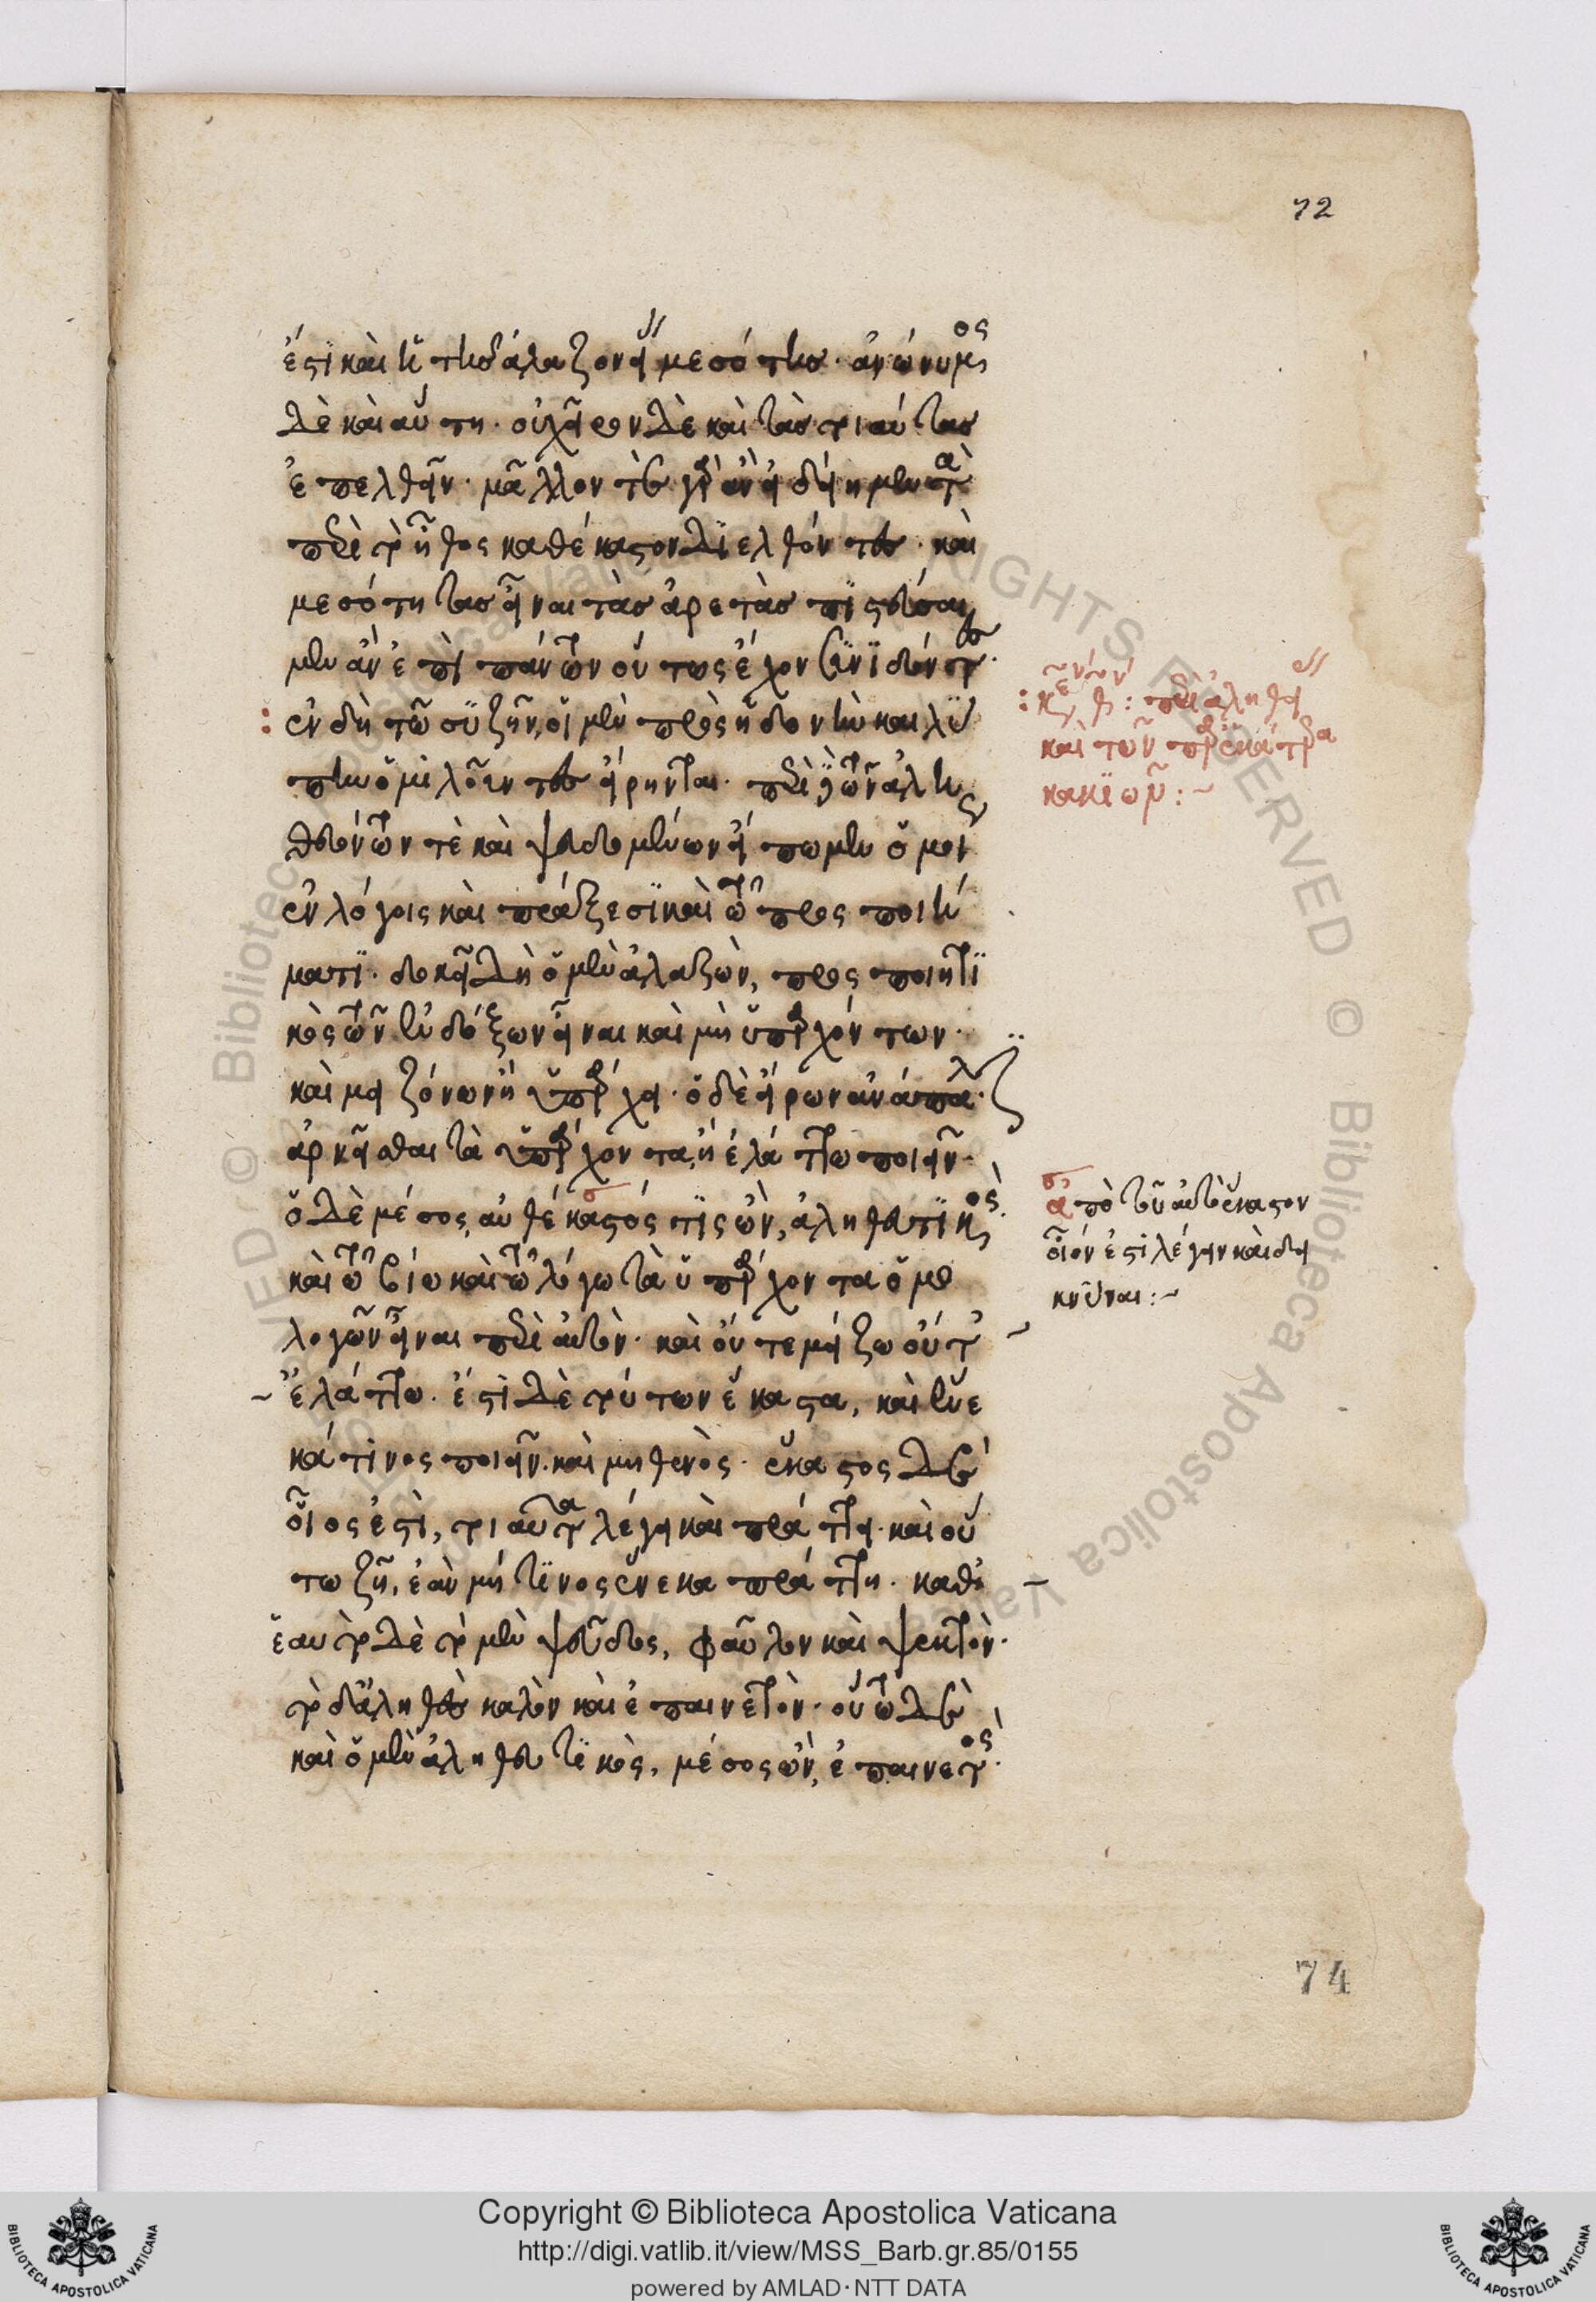 72
ἐστὶ καὶ ἡ τῆς ἀλαζονείας μεσότης· ἀνώνυμος
δὲ καὶ αὕτη· οὐ χεῖρον δὲ καὶ τὰς τοιαύτας
ἐπελθεῖν· μᾶλλόν τε γὰρ ἂν εἰδείημεν τὰ
περὶ τὸ ἦθος καθέκαστον διελθόντες· καὶ
μεσότητας εἶναι τὰς ἀρετὰς πιστεύσαιμεν
μεν ἂν ἐπὶ πάντων οὕτως ἔχον συνιδόντες·
ἐν δὴ τῶ συζῆν, οἱ μὲν πρὸς ἡδονὴν καὶ λύ
πην ὁμιλοῦντες εἴρηνται· περὶ δὲ τῶν ἀλη
θευόντων τὲ καὶ ψευδομένων εἴπωμεν ὁμοίως
ἐν λόγοις καὶ πράξεσι καὶ τῶ προσποιή
ματι· δοκεῖ δὴ ὁ μὲν ἀλαζὼν, προσποιητι
κὸς τῶν ἐνδόξων εἶναι καὶ μὴ ὑπαρχόντων·
καὶ μειζόνων ἢ ὑπάρχει· ὁ δὲ εἴρων ἀνάπαλιν
ἀρνεῖσθαι τὰ ὑπάρχοντα, ἢ ἐλάττω ποιεῖν·
ὁ δὲ μέσος, αὐθέκαστός τις ὢν, ἀληθευτικὸς
καὶ τῶ βίω καὶ τῶ λόγω τὰ ὑπάρχοντα ὁμο
λογῶν εἶναι περὶ αὐτὸν· καὶ οὔτε μείζω οὔτ
ἐλάττω· ἐστὶ δὲ τούτων ἕκαστα, καὶ ἕνε
κά τινος ποιεῖν· καὶ μηθενὸς· ἕκαστος δὲ
οἷος ἐστὶ, τοιαῦτα λέγει καὶ πράττει· καὶ οὕ
τω ζῆ, ἐὰν μή τινος ἕνεκα πράττη· καθ
ἑαυτὸ δὲ τὸ μὲν ψεῦδος, φαῦλον καὶ ψεκτὸν·
τὸ δ ἀληθὲς καλὸν καὶ ἐπαινετὸν· οὕτω δὲ
καὶ ὁ μὲν ἀληθευτικὸς, μέσος ὢν, ἐπαινετὸς·
περὶ ἀληθείας
καὶ τῶν παρ ἑκάτερα
κακιῶν :~
ἀπὸ τοῦ αὐτὸ ἕκαστον
οἷόν ἐστι λέγειν καὶ δει
κνύναι :~
74
Copyright © Biblioteca Apostolica Vaticana
http://digi.vatlib.it/view/MSS_Barb.gr.85/0155
powered by AMLAD·NTT DATA